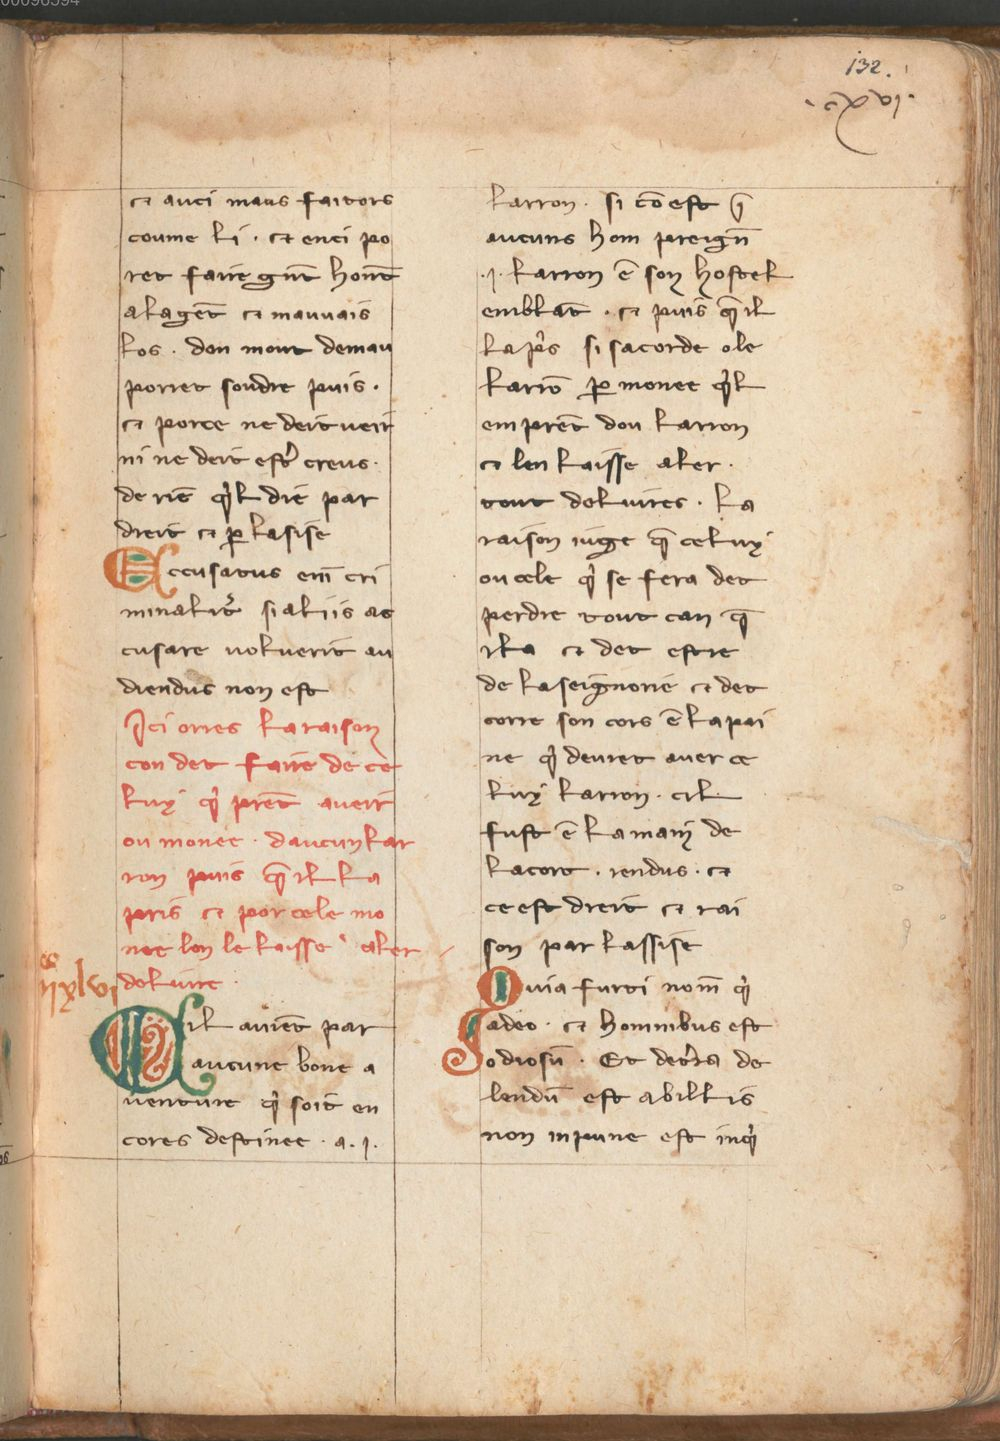 132.
cxvi
et auci maus faitors
coume li · et enci po
ret faire gn̄t hon̄t
a la gēt et mauvais
los · don mout de mau
porret soudre puis ·
et porce ne deit veir
ni ne deit estr̉ creus ·
de riē q̉l die par
dreit et ꝑ lasise
Accusatus em̄ cri
minalit̉ si aliis ac
cusare voluerit au
diendus non est
Ici orres la raison
con det faire de ce
luy q̉ prēt aveir
ou monee · daucun lar
ron puis q̄ il la
pris et por cele mo
nee lon le laisse aler
delivre ·
ccxlvi
Sil avient par
aucune bone a
venture q̉ soit en
cores destinee · a · i ·
larron · si cō est q̄
aucuns hom preign̄
· i · larron ē son hostel
emblāt · et puis q̄ il
la pris si sacorde o le
larrō ꝑ monee q̉l
em prēt dou larron
et len laisse aler ·
tout delivres · la
raison iuge q̄ celuy
ou cele q̉ se fera det
perdre tout can q̄
il a et det estre
de la seignorie et det
corre son cors ē la pai
ne q̉ devret aver ce
luy larron · cil
fust ē la main de
la cort · rendus · et
ce est dreit et rai
son par lassise
Quia furti nom̄ q̉
adeo · et hominibus est
odiosū · Et detr̉a de
lendū est ab illis
non inpune est inq̉